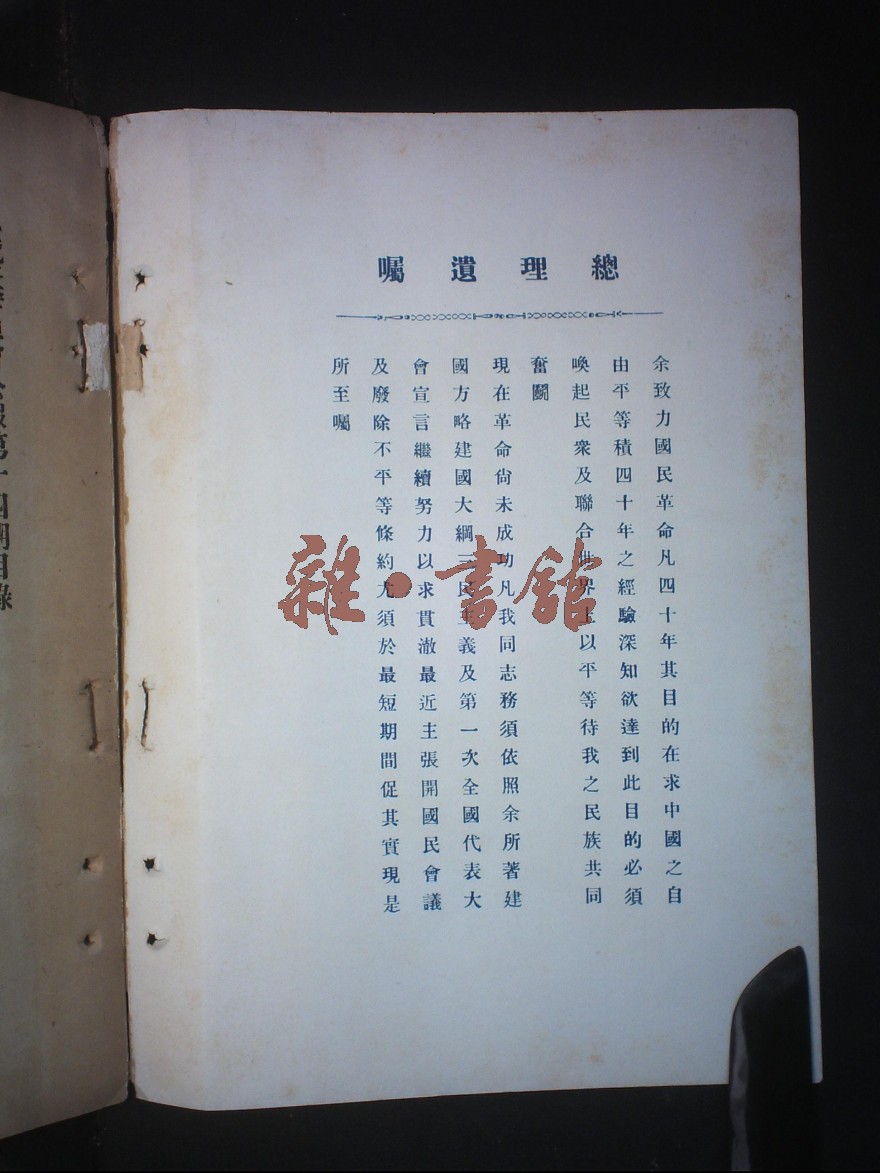 總理遺囑
余致力國民革命凡四十年其目的在求中國之自
由平等積四十年之經驗深知欲達到此目的必須
喚起民衆及聯合世界上以平等待我之民族共同
奮鬬
現在革命尙未成功凡我同志務須依照余所著建
國方略建國大綱三民主義及第一次全國代表大
會宣言繼續努力以求貫澈最近主張開國民會議
及廢除不平等條約尤須於最短期間促其實現是
所至囑
雜·書館
第十四期目錄